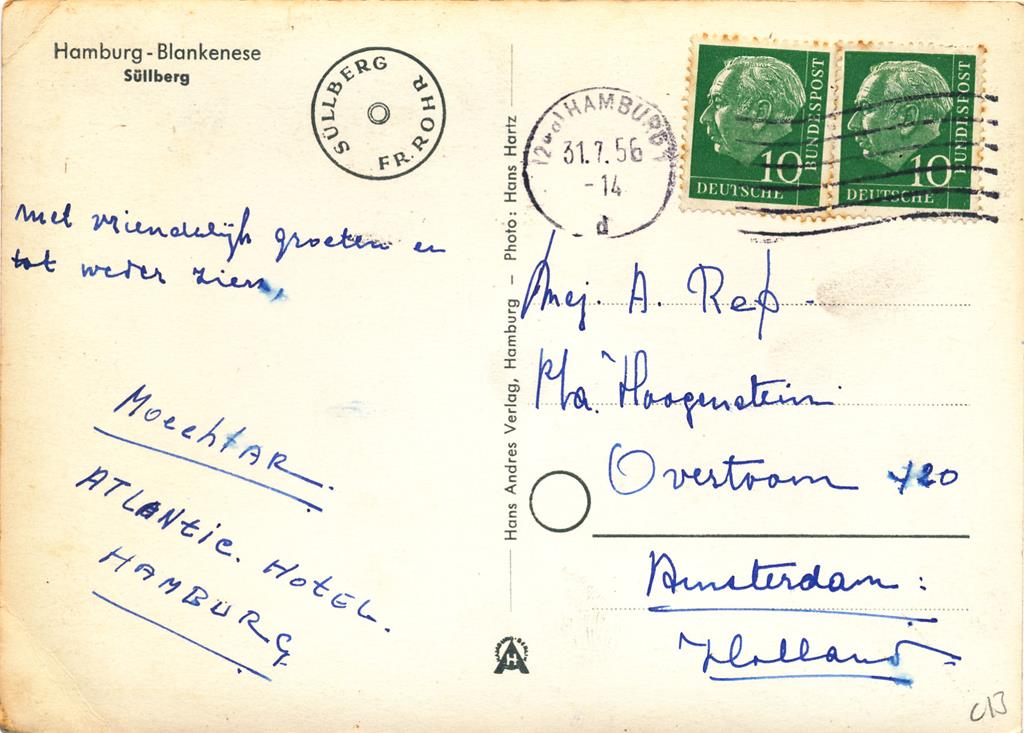 Hamburg - Blankenese
Süllberg
SÜLLBERG FR. ROHR
HAMBURG
31.7.56
-14
d
10
DEUTSCHE
BUNDESPOST
10
DEUTSCHE
BUNDESPOST
met vriendelijk groeten en
tot weder ziens,
MoechtAR.
ATLANtic. HotEL.
HAMBURG
Hans Andres Verlag, Hamburg – Photo: Hans Hartz
Mej. A. Rep.
Hoogenstein
Overtoom
Amsterdam:
Holland